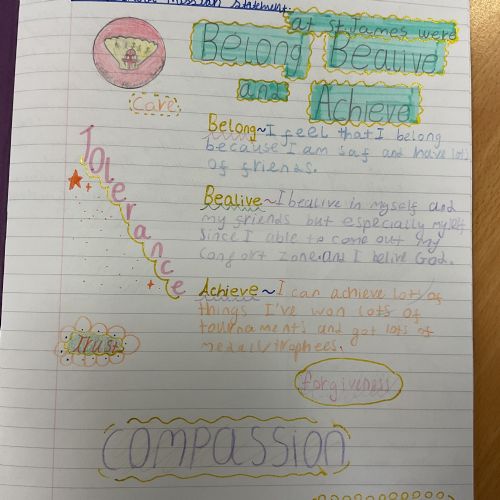 Mission Statement:
at St James were
Belong Bealive
and Achieve
Care
Belong~I feel that I belong
because I am saf and have lots
of friends.
Tolerance
Bealive~I bealive in myself and
my friends but especially myself
since I able to come out my
confort zone.and I belive God.
Achieve~I can achieve lots of
things I've won lots of
tournaments and got lots of
medals/trophees.
Trust
forgiveness
compassion